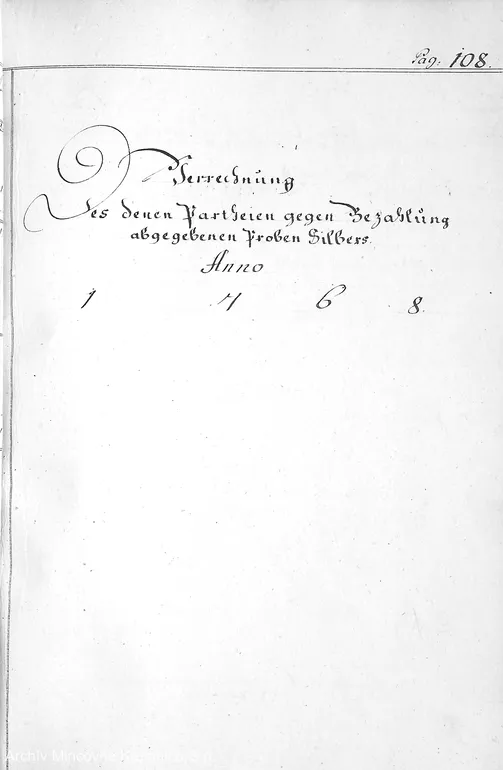 Pag: 108.
Verrechnung
Des denen Partheien gegen Bezahlung
abgegebenen Proben Silbers.
Anno
1 7 6 8.
Archív Mincovne